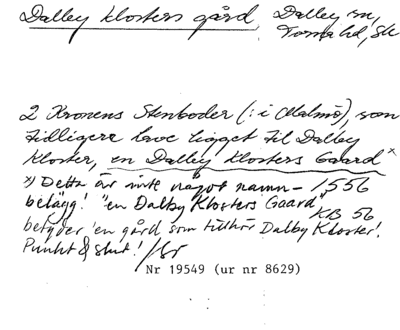 Dalby klosters gård, Dalby sn,
Torna hd, Sk
2 Kronens Stenboder (: i Malmö), som
tidligere have ligget til Dalby
Kloster, en Dalby Klosters Gaard x
x) Detta är inte något namn- 1556
belägg! "en Dalby Klosters Gaard" KB 56
betyder 'en gård som tillhör Dalby Kloster'.
Punkt & slut! /
Nr 19549 (ur nr 8629)